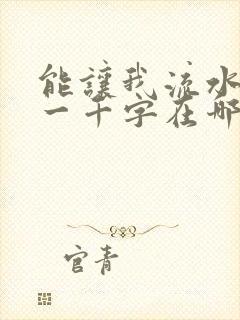 能讓我流水
一千字在哪
官青